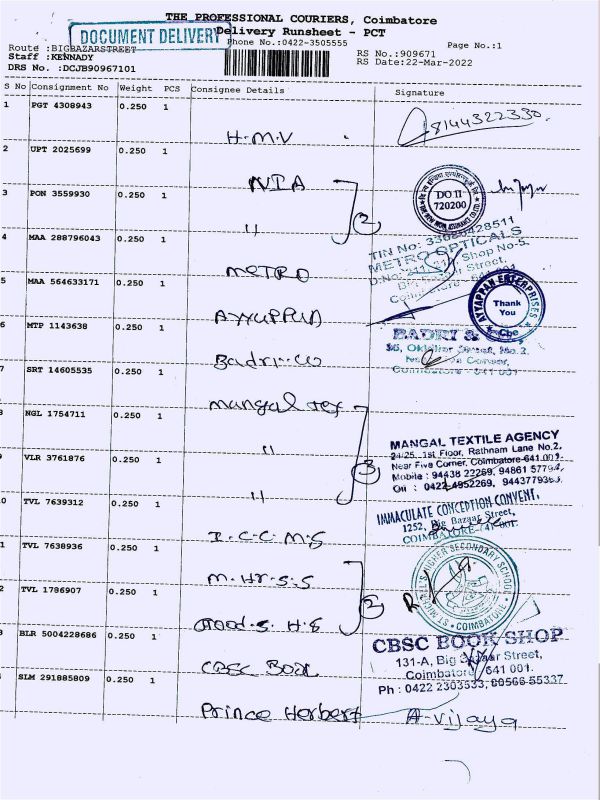 THE PROFESSIONAL COURIERS, Coimbatore
DOCUMENT DELIVERY
Delivery Runsheet - PCT
Phone No.:0422-3505555
Page No.:1
Route :BIGBAZARSTREET
RS No.:909671
Staff :KENNADY
RS Date:22-Mar-2022
DRS No. :DCJB90967101
S No Consignment No Weight PCS Consignee Details Signature
1 PGT 4308943 0.250 1
H.M.V 8144322330.
2 UPT 2025699 0.250 1
NIA
DO II
720200
3 PON 3559930 0.250 1
" 2
TIN No:
METRO OPTICALS
Shop No-5,
4 MAA 288796043 0.250 1
METRO
5 MAA 564633171 0.250 1
AYYAPPAN ENTERPRISES
Thank
You
Cbe
6 MTP 1143638 0.250 1
BADRI &
Badri.co
7 SRT 14605535 0.250 1
Coimbatore - 641 001
mangal tex
NGL 1754711 0.250 1
" 3
MANGAL TEXTILE AGENCY
24/25, 1st Floor, Rathnam Lane No.2,
Near Five Corner, Coimbatore-641 001.
Mobile : 94438 22269, 94861
Off : 0422-4952269,
VLR 3761876 0.250 1
"
TVL 7639312 0.250 1
IMMACULATE CONCEPTION CONVENT,
1252, Big Bazaar Street,
COIMBATORE-641 001.
I.C.C M.S
TVL 7638936 0.250 1
M.Hr.S.S 2
ST. MICHAEL'S HIGHER SECONDARY SCHOOL
COIMBATORE
TVL 1786907 0.250 1
BLR 5004228686 0.250 1
CBSC BOOK SHOP
131-A, Big Bazaar Street,
Coimbatore - 641 001.
Ph : 0422 2303533,
CBSC Book
SLM 291885809 0.250 1
Prince Herbert A-vijaya